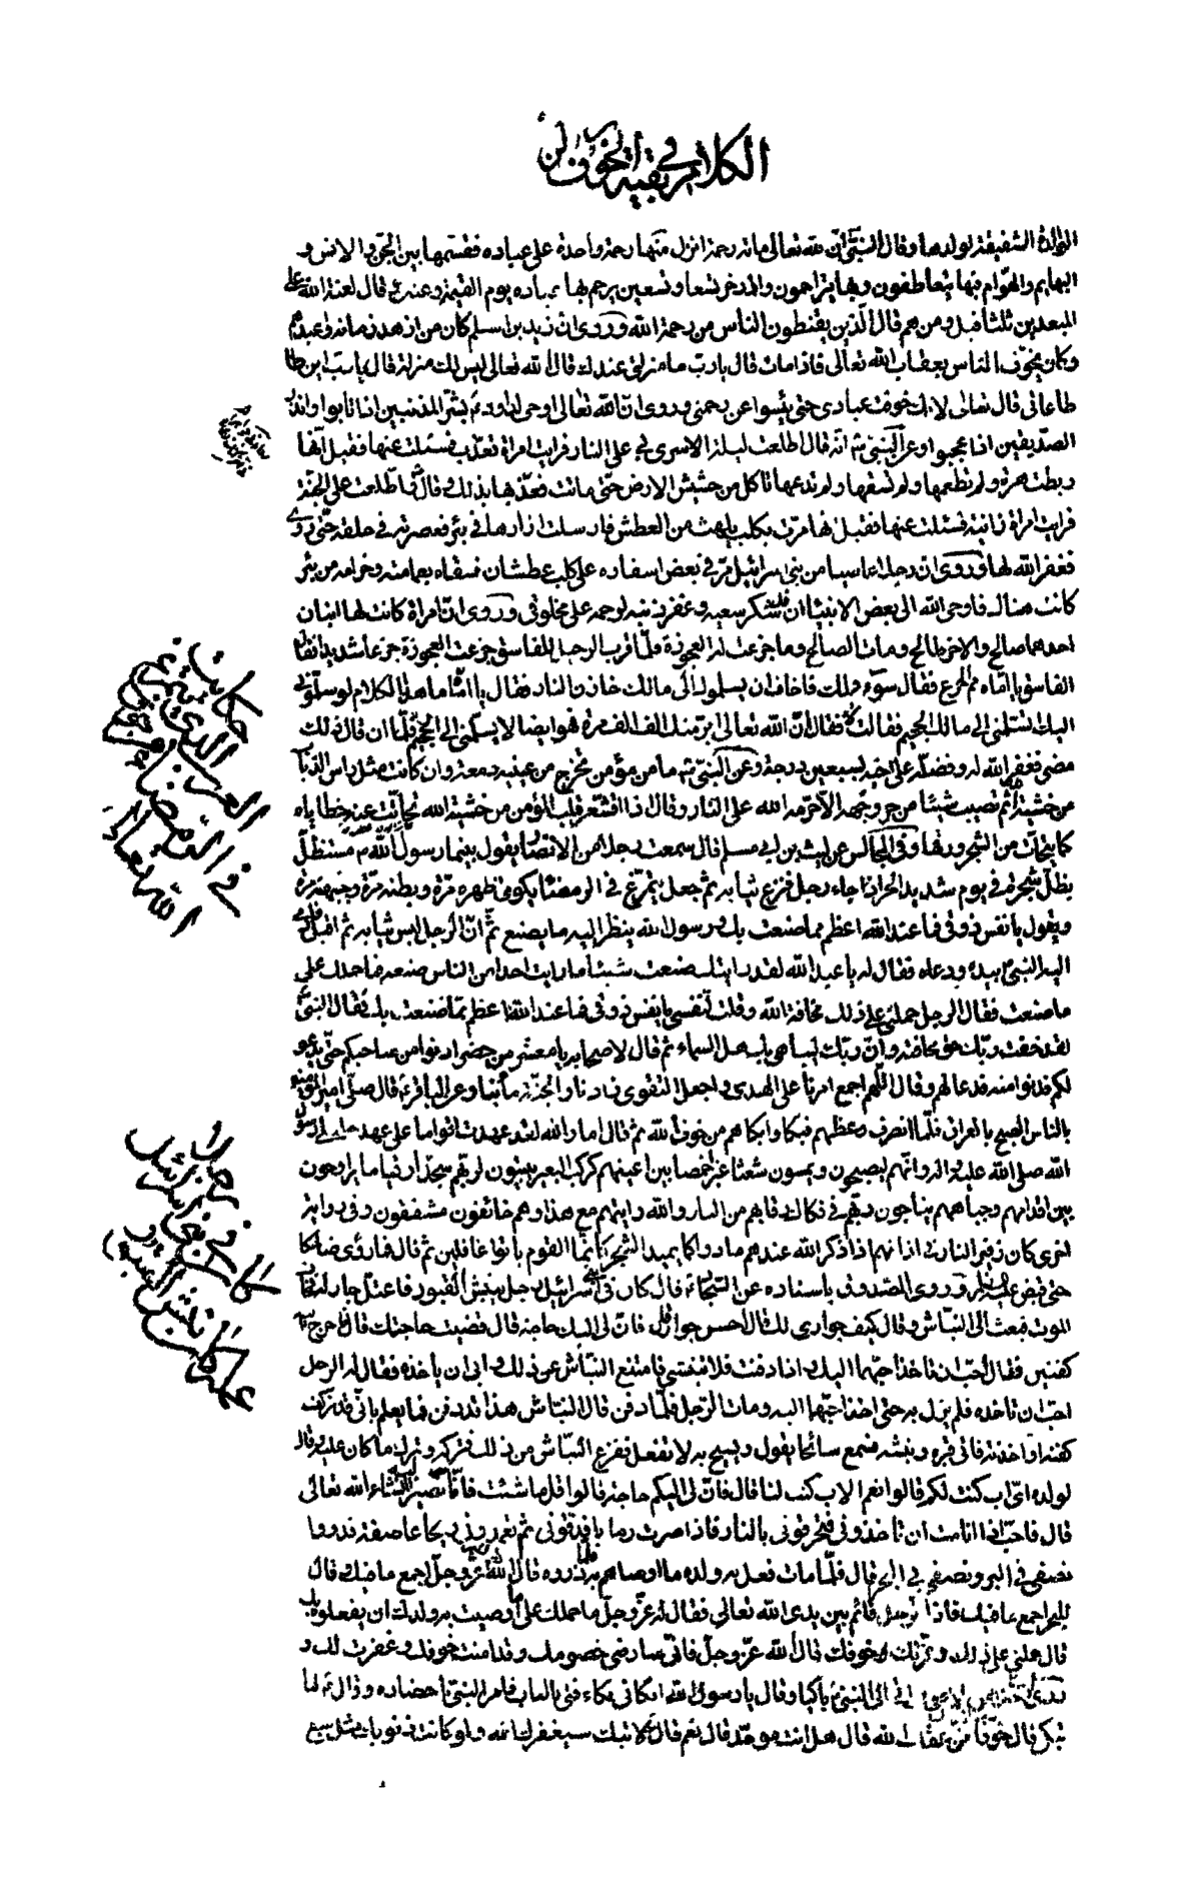 الكلام في بقية الخوف
الوالدة الشفيقة لولدها وقال النبى ان لله تعالى مائة رحمة انزل منها رحمة واحدة على عباده فقسمها بين الجن والانس و
البهايم والهوام فبها يتعاطفون وبها يتراحمون واخر تسعا وتسعين يرحم بها عباده يوم القيمة وعنه قال لعنة الله على
المبعدين ثلثا قيل ومن هم قال الذين يقنطون الناس من رحمة الله وروى ان زيد بن اسلم كان من ازهد زمانه واعبدهم
وكان يخوف الناس بعقاب الله تعالى فاذا مات قال يا رب ما منزلتى عندك قال الله تعالى ليس لك منزلة قال يا رب اين
طاعاتى قال تعالى لانك خوفت عبادى حتى يئسوا عن رحمتى وروى ان الله تعالى اوحى الى داود بشر المذنبين اذا تابوا وانذر
الصديقين اذا عجبوا وعن النبى انه قال اطلعت ليلة الاسرى بى على النار فرايت امراة تعذب فسئلت عنها فقيل انها
ربطت هرة ولم تطعمها ولم تسقها ولم تدعها تاكل من حشيش الارض حتى ماتت فعذبها بذلك وقال فاطلعت على الجنة
فرايت امراة زانية فسئلت عنها فقيل انها مرت بكلب يلهث من العطش فارسلت ازارها في بئر فعصرته في حلقه حتى روى
فغفر الله لها وروى ان رجلا عاصيا من بنى اسرائيل مر في بعض اسفاره على كلب عطشان فسقاه بعمامته وخرامه من بئر
كانت هناك فاوحى الله الى بعض الانبياء ان شكر سعيه وغفر ذنبه لرحمه على مخلوقى وروى ان امراة كانت لها ابنان
احدهما صالح والاخر طالح ومات الصالح وما جزعت له العجوزة فلما قرب الرجل الفاسق جزعت العجوزة جزعا شديدا فقال
الفاسق يا اماه مم الجزع فقال سوء عملك فاخاف ان يسلموك الى مالك خازن النار فقال يا اماه ما هذا الكلام لو سلمونى
اليك تسلمنى الى مالك الجحيم فقالت لا فقال ان الله تعالى ابر منك الف الف مرة فهو ايضا لا يسلمنى الى الجحيم فلما ان قال ذلك
مضى فغفر الله له وفضله على اخيه بسبعين درجة وعن النبى ما من مؤمن تخرج من عينيه دمعة وان كانت مثل راس الذباب
من خشية ثم تصيب شيئا من حر وجهه الا حرمه الله على النار وقال اذا اقشعر قلب المؤمن من خشية الله تحاتت عنه خطاياه
كما يتحات من الشجر ورقها وفى المجالس عن ليث بن ابى سليم قال سمعت رجلا من الانصار يقول بينما رسول الله مستظل
بظل شجرة في يوم شديد الحر اذا جاء رجل فنزع ثيابه ثم جعل يتمرغ في الرمضاء يكوى ظهره مرة وبطنه مرة وجبهته مرة
ويقول يا نفس ذوقى فما عند الله اعظم مما صنعت بك ورسول الله ينظر اليه ما يصنع ثم ان الرجل لبس ثيابه ثم اقبل
اليه النبى بيده ودعاه فقال له يا عبد الله لقد رايتك صنعت شيئا ما رايت احدا من الناس صنعه فما حملك على
ما صنعت فقال الرجل حملنى على ذلك مخافة الله وقلت لنفسى يا نفس ذوقى فما عند الله اعظم مما صنعت بك فقال النبى
لقد خفت ربك حق مخافته وان ربك ليباهى بك اهل السماء ثم قال لاصحابه يا معشر من حضر ادنوا من صاحبكم حتى يدعو
لكم فدنوا منه فدعا لهم وقال اللهم اجمع امرنا على الهدى واجعل التقوى زادنا والجنة مآبنا وعن الباقر قال صلى امير المؤمنين
بالناس الصبح بالعراق فلما انصرف وعظهم فبكا وابكاهم من خوف الله ثم قال اما والله لقد عهدت اقواما على عهد خليلى رسول
الله صلى الله عليه واله وانهم ليصبحون ويمسون شعثا غبرا خمصا بين اعينهم كركب البعير يبيتون لربهم سجدا وقياما يراوحون
بين اقدامهم وجباههم يناجون ربهم في فكاك رقابهم من النار والله رايتهم مع هذا وهم خائفون مشفقون وفى رواية
اخرى كان زفير النار في اذانهم اذا ذكر الله عندهم مادوا كما يميد الشجر كانما القوم باتوا غافلين ثم قال فما رؤى ضاحكا
حتى قبض عليه السلام وروى الصدوق باسناده عن السجاد قال كان فى بنى اسرائيل رجل ينبش القبور فاعتل جار له فخاف
الموت فبعث الى النباش وقال كيف جوارى لك قال احسن جوار قال فان لى اليك حاجة قال قضيت حاجتك قال فاخرج اليه
كفنين فقال احب ان تاخذ احبهما اليك واذا دفنت فلا تنبشنى فامتنع النباش عن ذلك وابى ان ياخذه فقال له الرجل
احب ان تاخذه فلم يزل به حتى اخذ احبهما اليه ومات الرجل فلما دفن قال النباش هذا قد دفن فما يعلم بانى قد تركت
كفنه او اخذته فاتى قبره ونبشه فسمع سائحا يقول ويسيح به لا تفعل ففزع النباش من ذلك فتركه وترك ما كان عليه وقال
لولده اى اب كنت لكم قالوا نعم الاب كنت لنا قال فان لى اليكم حاجة قالوا قل ما شئت فانا سنصير اليه انشاء الله تعالى
قال فاحب اذا انا مت ان تاخذونى فتحرقونى بالنار فاذا صرت رمادا فدقونى ثم تعمدوا بى ريحا عاصفة فذروا
نصفى في البر ونصفى فى البحر قال فلما مات فعل به ولده ما اوصاهم به فلما ذروه قال الله عز وجل اجمع ما فيك وقال
للبحر اجمع ما فيك فاذا الرجل قائم بين يدى الله تعالى فقال له عز وجل ما حملك على ما اوصيت به ولدك ان يفعلوه بك
قال حملنى على ذلك وعزتك خوفك قال الله عز وجل فانى سارضى خصومك وقد امنت خوفك وغفرت لك و
اتى الى النبى باكيا وقال يا رسول الله ابكانى بكاء فتى بالباب فامر النبى باحضاره وقال له لما
تبكى قال خوفا من الله قال هل انت موحد قال نعم قال لا تبك سيغفرك الله ولو كانت ذنوبك مثل سبع
حكايت
الذى
فى الرمضاء
الله تعالى
رجلا
كان فى بنى اسرائيل
عمله كان نبش القبور